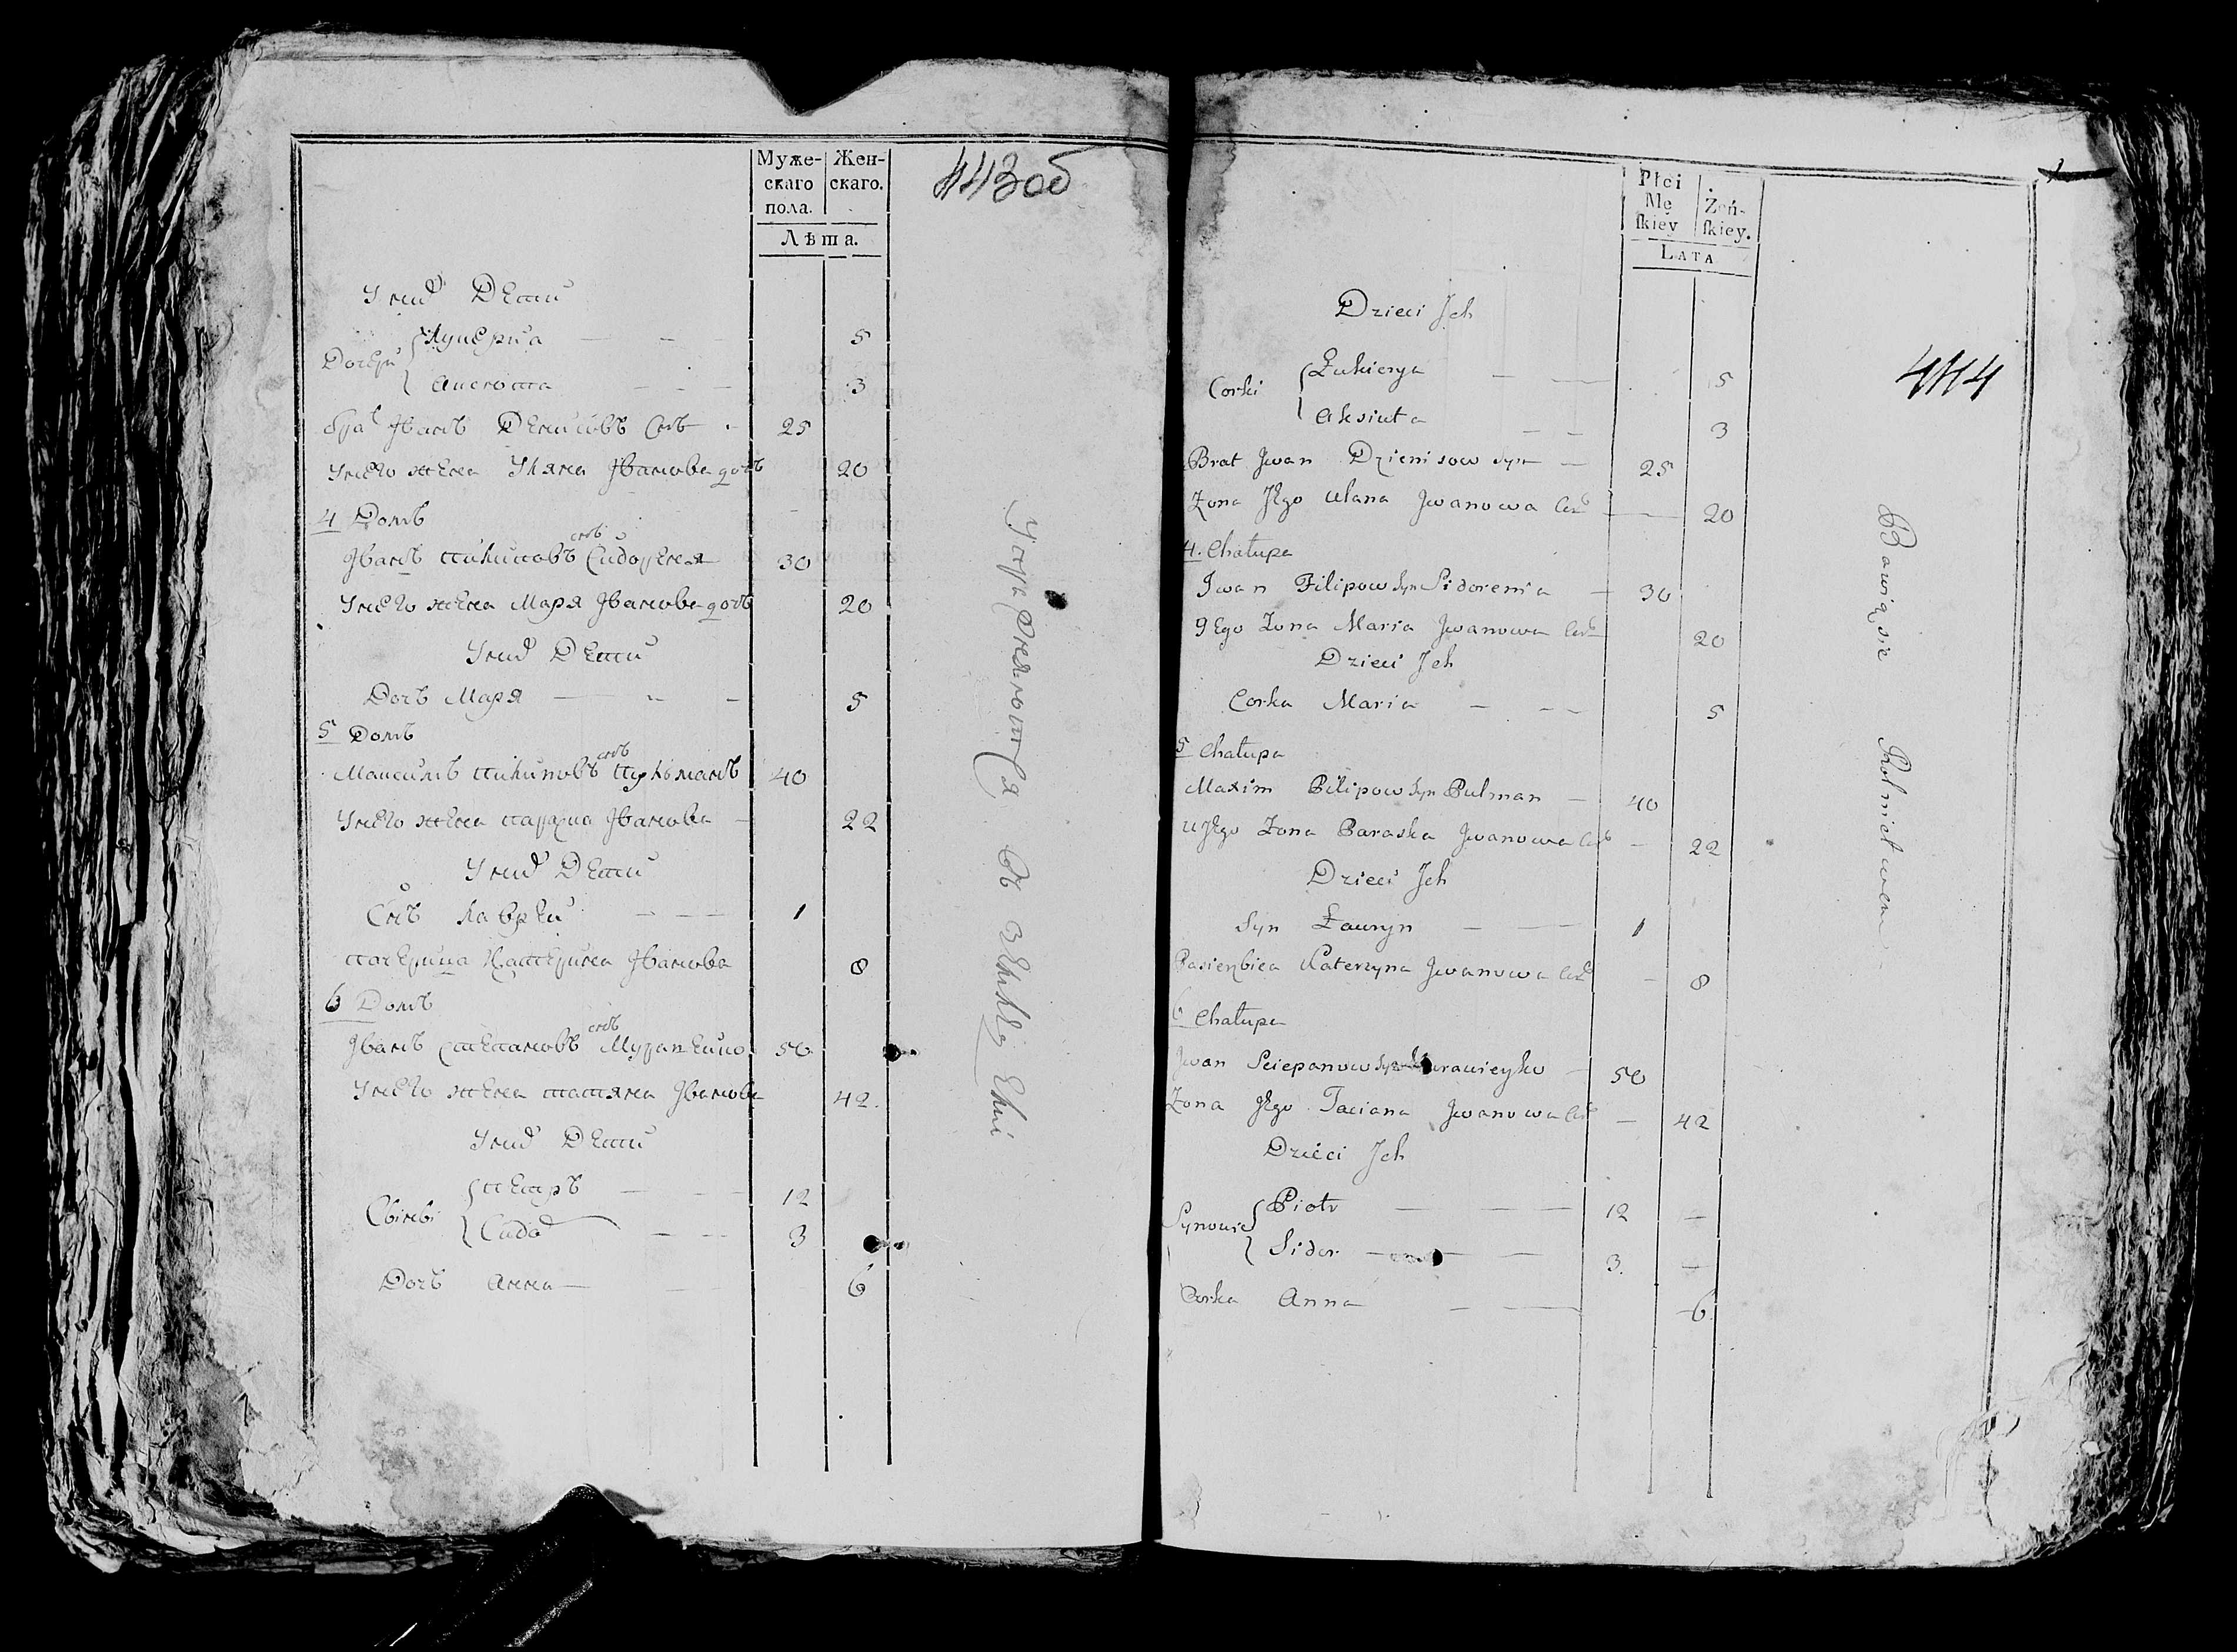 Муже-
скаго
пола.
Жен-
скаго.
Лѣта.
443об
У них Дети
Дочери
Лукерия 5
Аксюта 3
Бра Иванъ Денисовъ Снъ 25
У него жена Уляна Иванова дочъ 20
4 Домъ
Иванъ пилиповъ снъ Сидореня 30
У него жена Маря Иванова дочъ 20
У них Дети
Дочъ Маря 5
5 Домъ
Максимъ пилиповъ снъ пульманъ 40
У него жена параска Иванова 22
У них Дети
Снъ Лаврен 1
пачерица Катерина Иванова 8
6 Домъ
Иванъ степановъ снъ Муравейко 50
У него жена татяна Иванова 42.
У них Дети
Сынви
петръ 12
Сидо 3
Дочъ Анна 6
Упражняются
Płci
Mę
ſkiey
Żeń-
ſkiey.
LATA
444
Dzieci Jch
Corki
Łukierya 5
Aksiuta 3
Brat Jwan Dzienisow syn 25
Zona Jego Ulana Jwanowa 20
4. Chałupa
Jwan Filipow syn Sidorenia 30
Jego Zona Maria Jwanowa 20
Dzieci Jch
Corka Maria 5
5 Chałupa
Maxim Filipow syn Pulman 40
U Jego Zona Paraska Jwanowa 22
Dzieci Jch
Syn Ławryn 1
Pasierbica Katerzyna Jwanowa 8
6 Chałupa
Jwan Sciepanow syn 50
Zona Jego Taciana Jwanowa 42
Dzieci Jch
Synowie
Piotr 12
Sidor 3.
Corka Anna 6.
Bawią się Rolnictwem